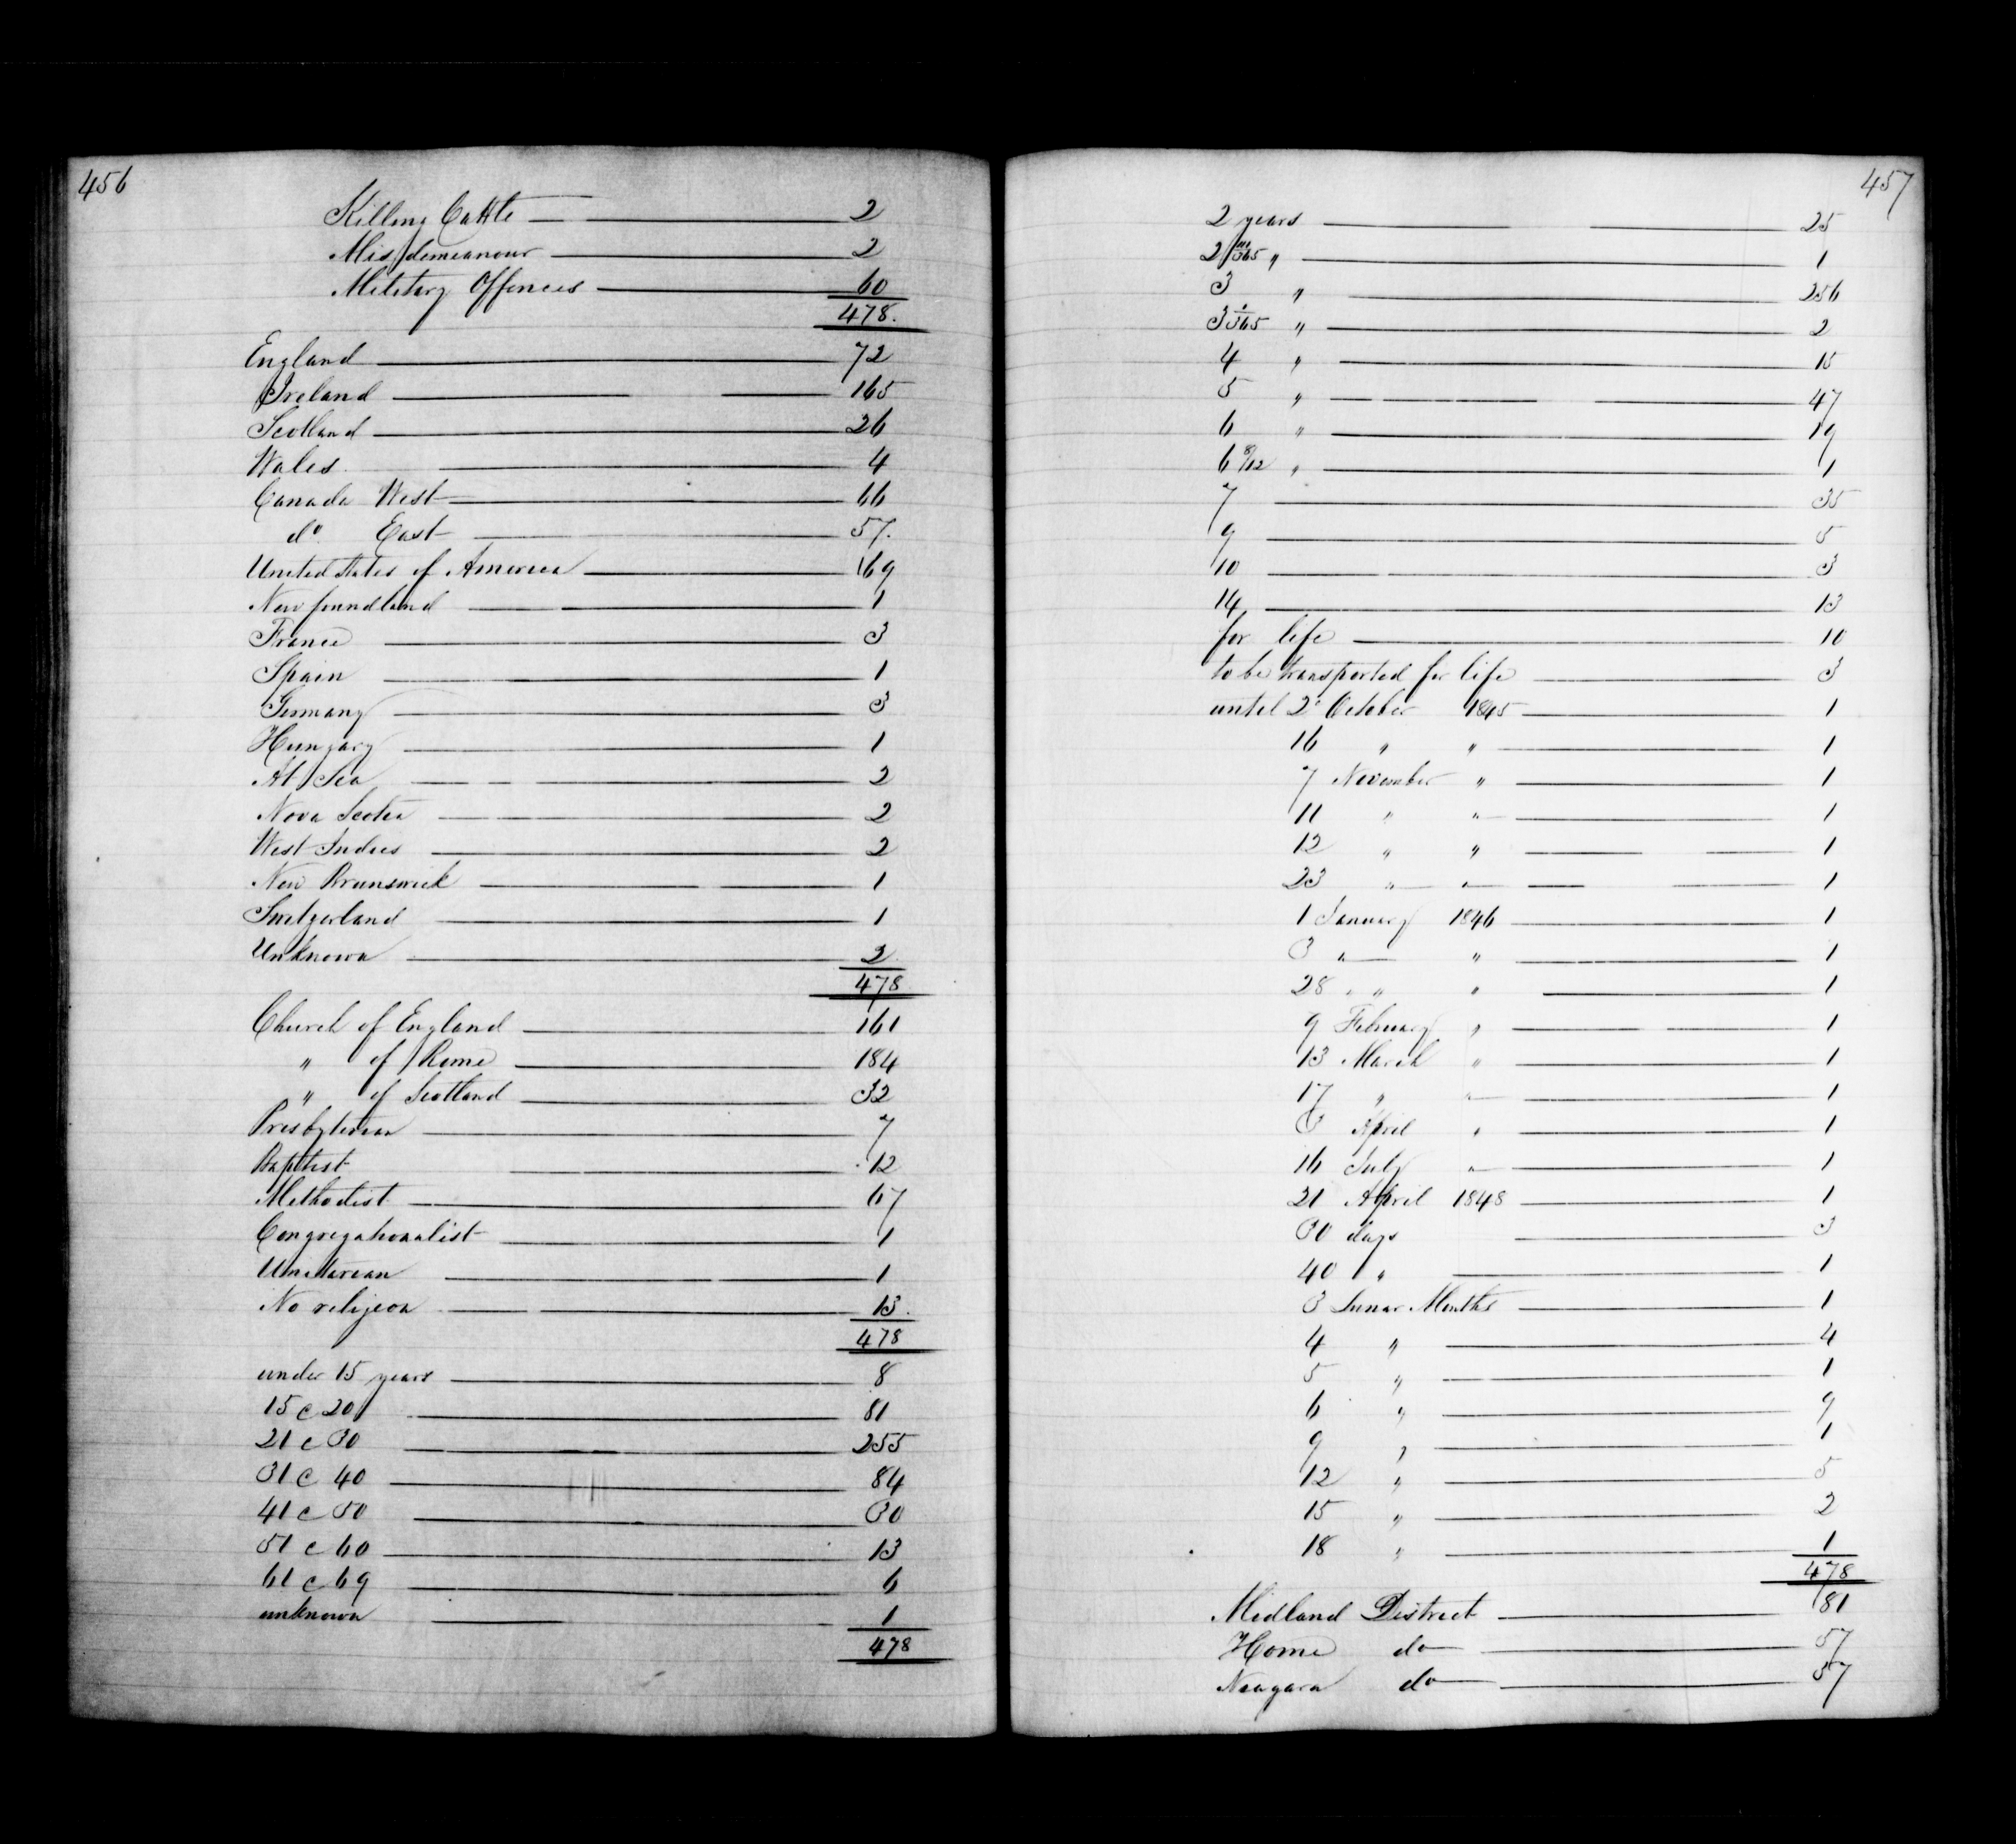 456
Killing Cattle 2
Misdemeanour 2
Military Offences 60
478.
England 72
Ireland 165
Scotland 26
Wales 4
Canada West 66
do East 57.
United States of America 69
Newfoundland 1
France 3
Spain 1
Germany 3
Hungary 1
At Sea 2
Nova Scotia 2
West Indies 2
New Brunswick 1
Switzerland 1
Unknown 2
478
Church of England 161
" of Rome 184
" of Scotland 32
Presbyterian 7
Baptist 12
Methodist 67
Congregationalist 1
Unitarian 1
No religion 13.
478
under 15 years 8
15 @ 20 81
21 @ 30 255
31 @ 40 84
41 @ 50 30
51 @ 60 13
61 @ 69 6
unknown 1
478
457
2 years 25
2 /365 " 1
3 " 256
3 1/365 " 2
4 " 15
5 " 47
6 " 19
6 8/12 " 1
7 35
9 5
10 3
14 13
for life 10
to be transported for life 3
until 2d October 1845 1
16 " " 1
7 November " 1
11 " " 1
12 " " 1
23 " " 1
1 January 1846 1
3 " " 1
28 " " 1
9 February " 1
13 March " 1
17 " " 1
3 April " 1
16 July " 1
21 April 1848 1
30 days 3
40 " 1
3 Lunar Months 1
4 " 4
5 " 1
6 " 9
9 " 1
12 " 5
15 " 2
18 " 1
478
Midland District 81
Home do 57
Niagara do 57